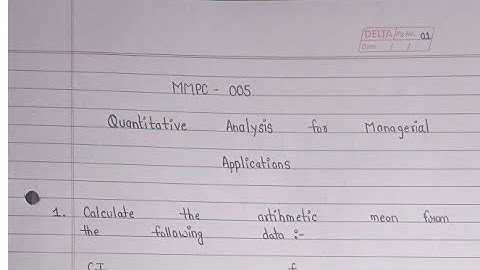 DELTA Pg No. 01
Date / /
MMPC - 005
Quantitative Analysis for Managerial
Applications
1. Calculate the artihmetic mean from
the following data :-
C.I f